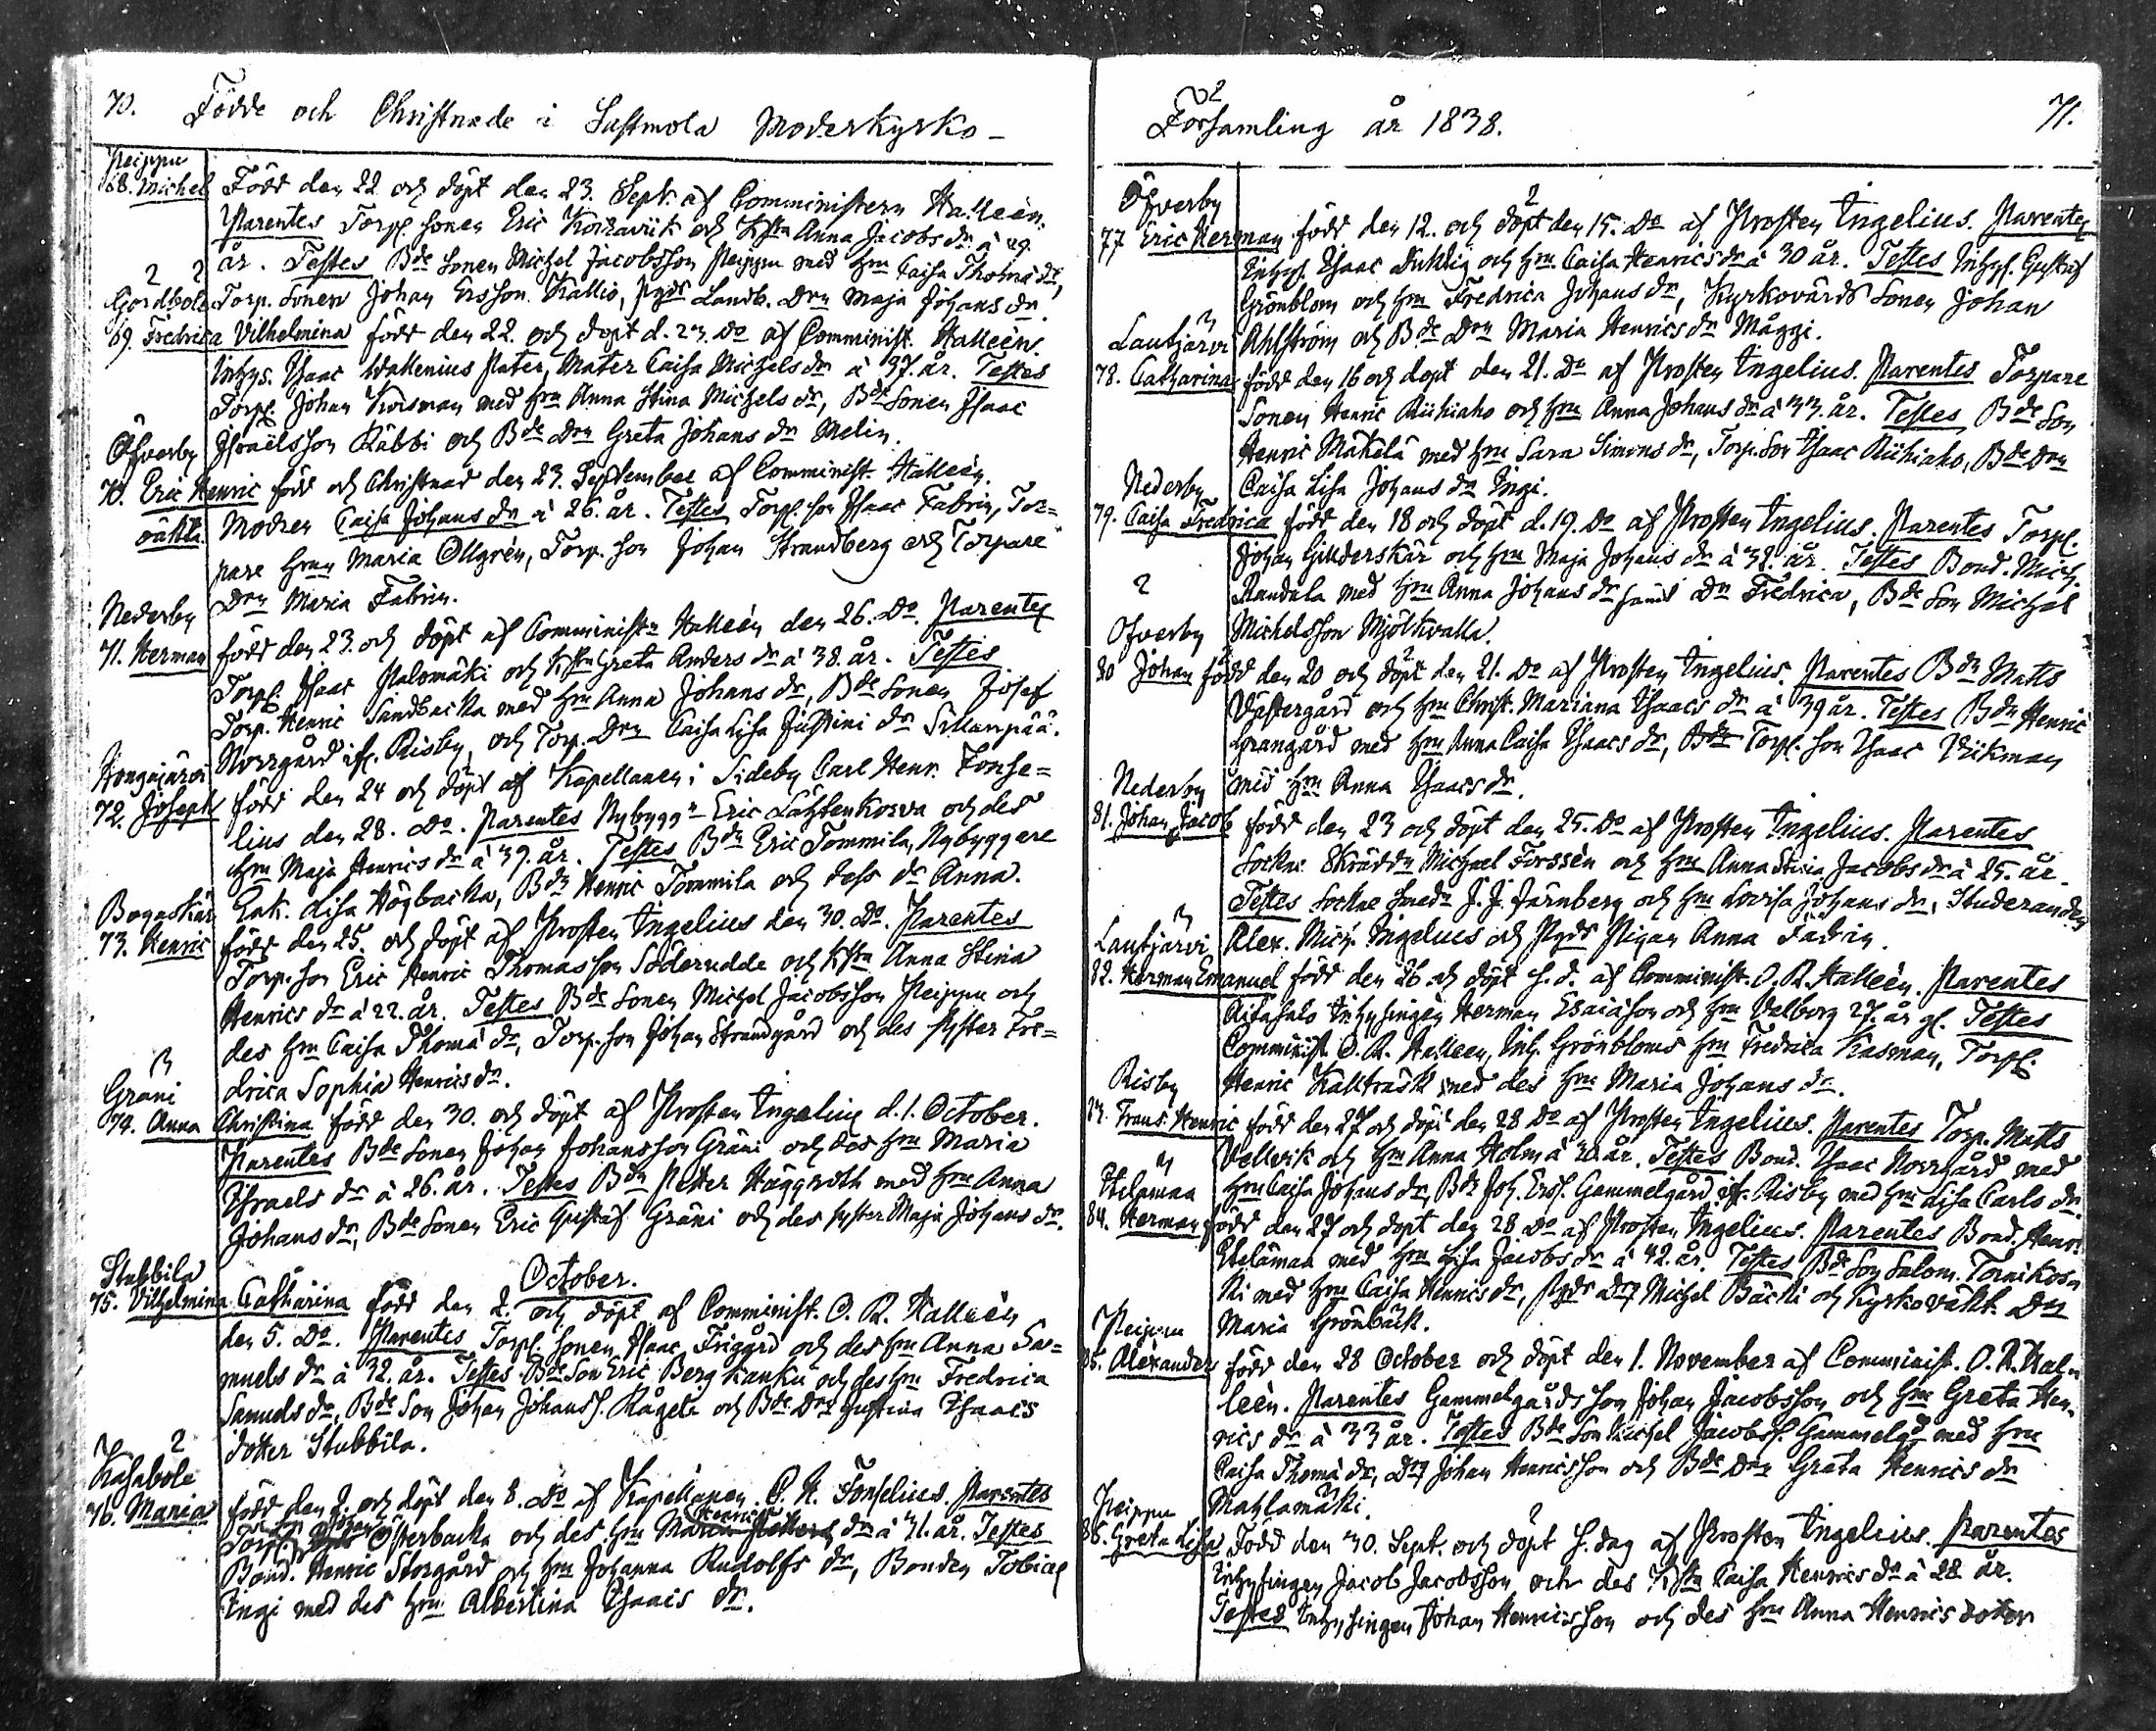 70. Födde och Christnade i Sastmola Moderkyrko-
Peippu
68. Michel Född den 22 och döpt den 23. Sept. af Comministern Halleèn.
Parentes Torp. sonen Eric Korkavirk och hstn Anna Jacobs dr à 29.
år. Testes Bde Sonen Michel Jacobsson Peippu med hru Caisa Thoma dr,
2 2
Gårdbole Torp. sonen Johan Ersson Kallio, Landb. Drn Maja Johans dr.
69. Fredrica Vilhelmina född den 22. och döpt d. 23. Do af Comminist. Halleèn.
Inhys. Isaac Wallenius Pater, Mater Caisa Michels dr à 37. år. Testes
Torp. Johan Krisman med hru Anna Stina Michels dr, Bde Sonen Isaac
Öfverby Israëlsson Räbbi och Bde Drn Greta Johans dr Melin.
70. Eric Henric född och Christnad den 23. September af Comminist. Halleèn.
oäkta Modren Caisa Johans dr à 26. år. Testes Torp. son Isaac Fabrin, Tor=
pare hrun Maria Ollgrén, Torp. son Johan Strandberg och Torpare
Drn Maria Fabrin.
Nederby
71. Herman född den 23. och döpt af Comministr Halleèn den 26. Do. Parentes
Torp. Isaac Palomäki och hstn Greta Anders dr à 38. år. Testes
Torp. Henric Sandbacka med hru Anna Johans dr, Bde Sonen Josef
Norrgård ifr. Risby, och Torp. Drn Caisa Lisa Justini dr Sillanpää.
Hongajärvi
72. Joseph född den 24 och döpt af Kapellanen i Sideby Carl Henr. Fonse=
lius den 28. Do. Parentes Nybyggn Eric Lähtenkorva och des
hru Maja Henrics dr à 39. år. Testes Bdn Eric Tommila, Nybyggare
Enk. Lisa Högbacka, Bdn Henric Tommila och dess dr Anna.
Bogaskär
73. Henric född den 25. och döpt af Prosten Ingelius den 30. Do. Parentes
Torp. son Eric Henric Thomasson Söderudde och hstn Anna Stina
Henrics dr à 22. år. Testes Bde Sonen Michel Jacobsson Peippu och
des hru Caisa Thomä dr, Torp. son Johan Strandgård och des syster Fre=
drica Sophia Henrics dr.
3
Gräni
74. Anna Christina född den 30. och döpt af Prosten Ingelius d. 1. October.
Parentes Bde Sonen Johan Johansson Gräni och des hru Maria
Israels dr à 26. år. Testes Bdn Petter Häggroth med hru Anna
Johans dr, Bde Sonen Eric Gustaf Gräni och des syster Maja Johans dr.
October.
Stubbila
75. Vilhelmina Catharina född den 2. och döpt af Comminist. O. R. Halleèn
den 5. Do. Parentes Torp. sonen Isaac Friggård och des hru Anna Sa=
muels dr à 32. år. Testes Bde Son Eric Berg Kanku och des hru Fredrica
Samuels dr, Bde Son Johan Johanss. Rågel och Bde Drn Justina Isaacs
dotter Stubbila.
2
Kasabole
76. Maria född den 2. och döpt den 8. Do af Kapellanen C. H. Fonselius. Parentes
Torp. Johan Österbacka och des hru Maria Henrics dr à 31. år. Testes
Bond. Henric Storgård och hru Johanna Rudolfs dr, Bonden Tobias
Ingi med des hru Albertina Isaacs dr.
Församling år 1838. 71.
Öfverby
77 Eric Herman född den 12. och döpt den 15. Do af Prosten Ingelius. Parentes
Inhys. Isaac Duktig och hru Caisa Henrics dr à 30 år. Testes Inhys. Gustaf
Grönblom och hru Fredrica Johans dr, Kyrkovärds Sonen Johan
Lautjärvi Ahlström och Bde Drn Maria Henrics dr Måggi.
78. Catharina född den 16 och döpt den 21. Do af Prosten Ingelius. Parentes Torpare
Sonen Henric Riihiaho och hru Anna Johans dr à 33. år. Testes Bde Son
Henric Mäkelä med hru Sara Simons dr, Torp. Son Isaac Riihiaho, Bde Drn
Nederby Caisa Lisa Johans dr Ingi.
79. Caisa Fredrica född den 18 och döpt d. 19. Do af Prosten Ingelius. Parentes Torp.
Johan Gillderskär och hru Maja Johans dr à 38. år. Testes Bond. Mich.
2 Randala med hru Anna Johans dr samt Dn Fredrica, Bde Son Michel
Öfverby Michelsson Mjölkvalla.
80 Johan född den 20 och döpt den 21. Do af Prosten Ingelius. Parentes Bdn Matts
Västergård och hru Christ. Mariana Isaacs dr à 39 år. Testes Bdn Henric
Grangård med hru Anna Caisa Isaacs dr, Torp. son Isaac Vikman
Nederby med hru Anna Isaacs dr.
81. Johan Jacob född den 23 och döpt den 25. Do af Prosten Ingelius. Parentes
Sockne Skrädd. Michael Forssén och hru Anna Stina Jacobs dr à 25. år.
Testes Sockne Smedn J. J. Järnberg och hru Lovisa Johans dr, Studeranden
Lautjärvi Alex. Mich. Ingelius och Pigan Anna Fabrin.
82. Herman Emanuel född den 26 och döpt s. d. af Comminist. O. R. Halleèn. Parentes
Aitasalo Inhysingen Herman Esaiason och hru Valborg 27. år gl. Testes
Comminist O. R. Halleèn, Inh. Grönbloms hru Fredrica Kasman, Torp.
Risby Henric Kallträsk med des hru Maria Johans dr.
83. Frans Henric född den 27 och döpt den 28 Do af Prosten Ingelius. Parentes Torp. Matts
Vellvik och hru Anna Holm à år. Testes Bond. Isaac Norrgård med
hru Caisa Johans dr, Bdn Joh. Erss. Gammelgård ifr. Risby med hru Lisa Carls dr.
84. Herman född den 27 och döpt den 28 Do af Prosten Ingelius. Parentes Bond. Henr.
med hru Lisa Jacobs dr à 42. år. Testes Bde Son Salom. Tornikos=
ki med hru Caisa Henrics dr, Michel Bäcki och Kyrkovakt. Drn
Peippu Maria Grönbäck.
85. Alexander född den 28 October och döpt den 1. November af Comminist. O. R. Hal=
leèn. Parentes Gammelgårds son Johan Jacobsson och hru Greta Hen=
rics dr à 33 år. Testes Bde Son Michel Jacobss. Gammelgd med hru
Caisa Thomä dr, Johan Henricsson och Bde Drn Greta Henrics dr
Peippu Mahlamäki.
86. Greta Lisa Född den 30. Sept. och döpt s. dag af Prosten Ingelius. Parentes
Inhysingen Jacob Jacobsson och des hstn Caisa Henrics dr à 28 år.
Testes Inhysingen Johan Henricsson och des hru Anna Henrics dotter